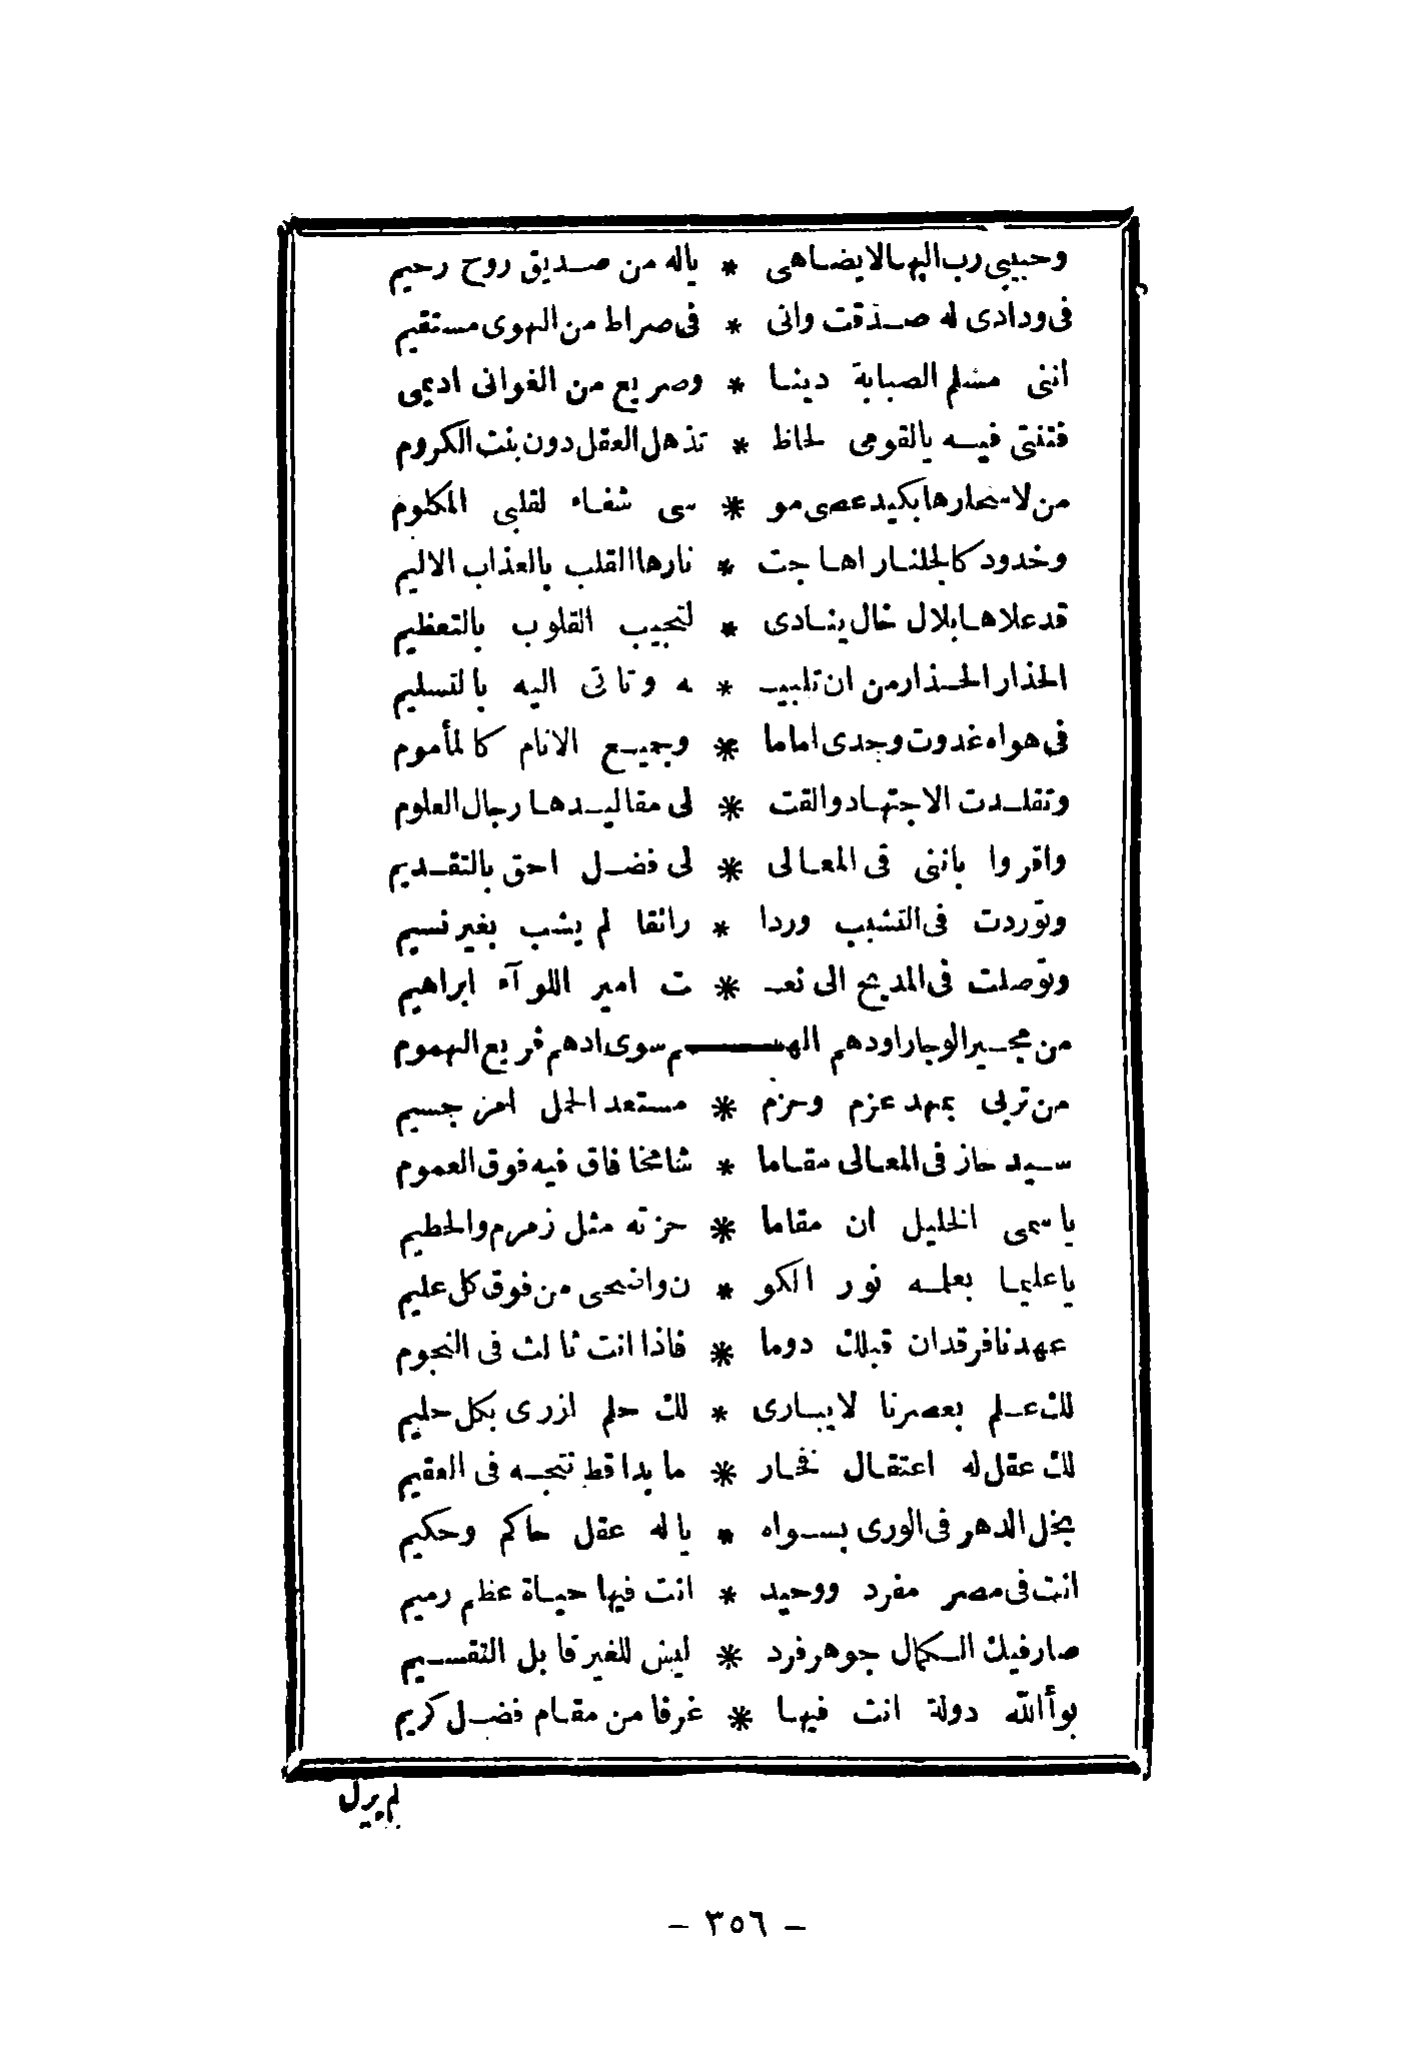 وحبيبي رب البها لا يضاهى * ياله من صديق روح رحيم
فى ودادى له صدقت وانى * فى صراط من الهوى مستقيم
اننى مسلم الصبابة دينا * وصريع من الغوانى اديمى
فتنتى فيه يالقومى لحاظ * تذهل العقل دون بنت الكروم
من لاسحارها بكيد عصى مو * سى شفاء لقلبى المكلوم
وخدود كالجلنار اهاجت * نارها القلب بالعذاب الاليم
قد علاها بلال خال ينادى * لنجيب القلوب بالتعظيم
الحذار الحذار من ان تلبيـ * ـه وتاتى اليه بالتسليم
فى هواه غدوت وجدى اماما * وجميع الانام كالمأموم
وتقلدت الاجتهاد والقت * لى مقاليدها رجال العلوم
واقروا باننى فى المعالى * لى فضل احق بالتقديم
وتوردت فى التشبب وردا * رائقا لم يشب بغير نسيم
وتوصلت فى المديح الى نعـ * ـت امير اللوآء ابراهيم
من مجير الوجار اودهم الهـم سوى ادهم قريع الهموم
من تربى بمهد عزم وحزم * مستعد الحمل امر جسيم
سيد حاز فى المعالى مقاما * شامخا فاق فيه فوق العموم
يا سمى الخليل ان مقاما * حزته مثل زمزم والحطيم
يا عليما بعلمه نور الكو * ن واضحى من فوق كل عليم
عهدنا فرقدان قبلك دوما * فاذا انت ثالث فى النجوم
لك علم بعصرنا لا يبارى * لك حلم ازرى بكل حليم
لك عقل له اعتقال فخار * ما بدا قط نتجه فى العقيم
بخل الدهر فى الورى بسواه * ياله عقل حاكم وحكيم
انت فى مصر مفرد ووحيد * انت فيها حياة عظم رميم
صار فيك الكمال جوهر فرد * ليس للغير قابل التقسيم
بوأ الله دولة انت فيها * غرفا من مقام فضل كريم
لم يزل
- ٣٥٦ -